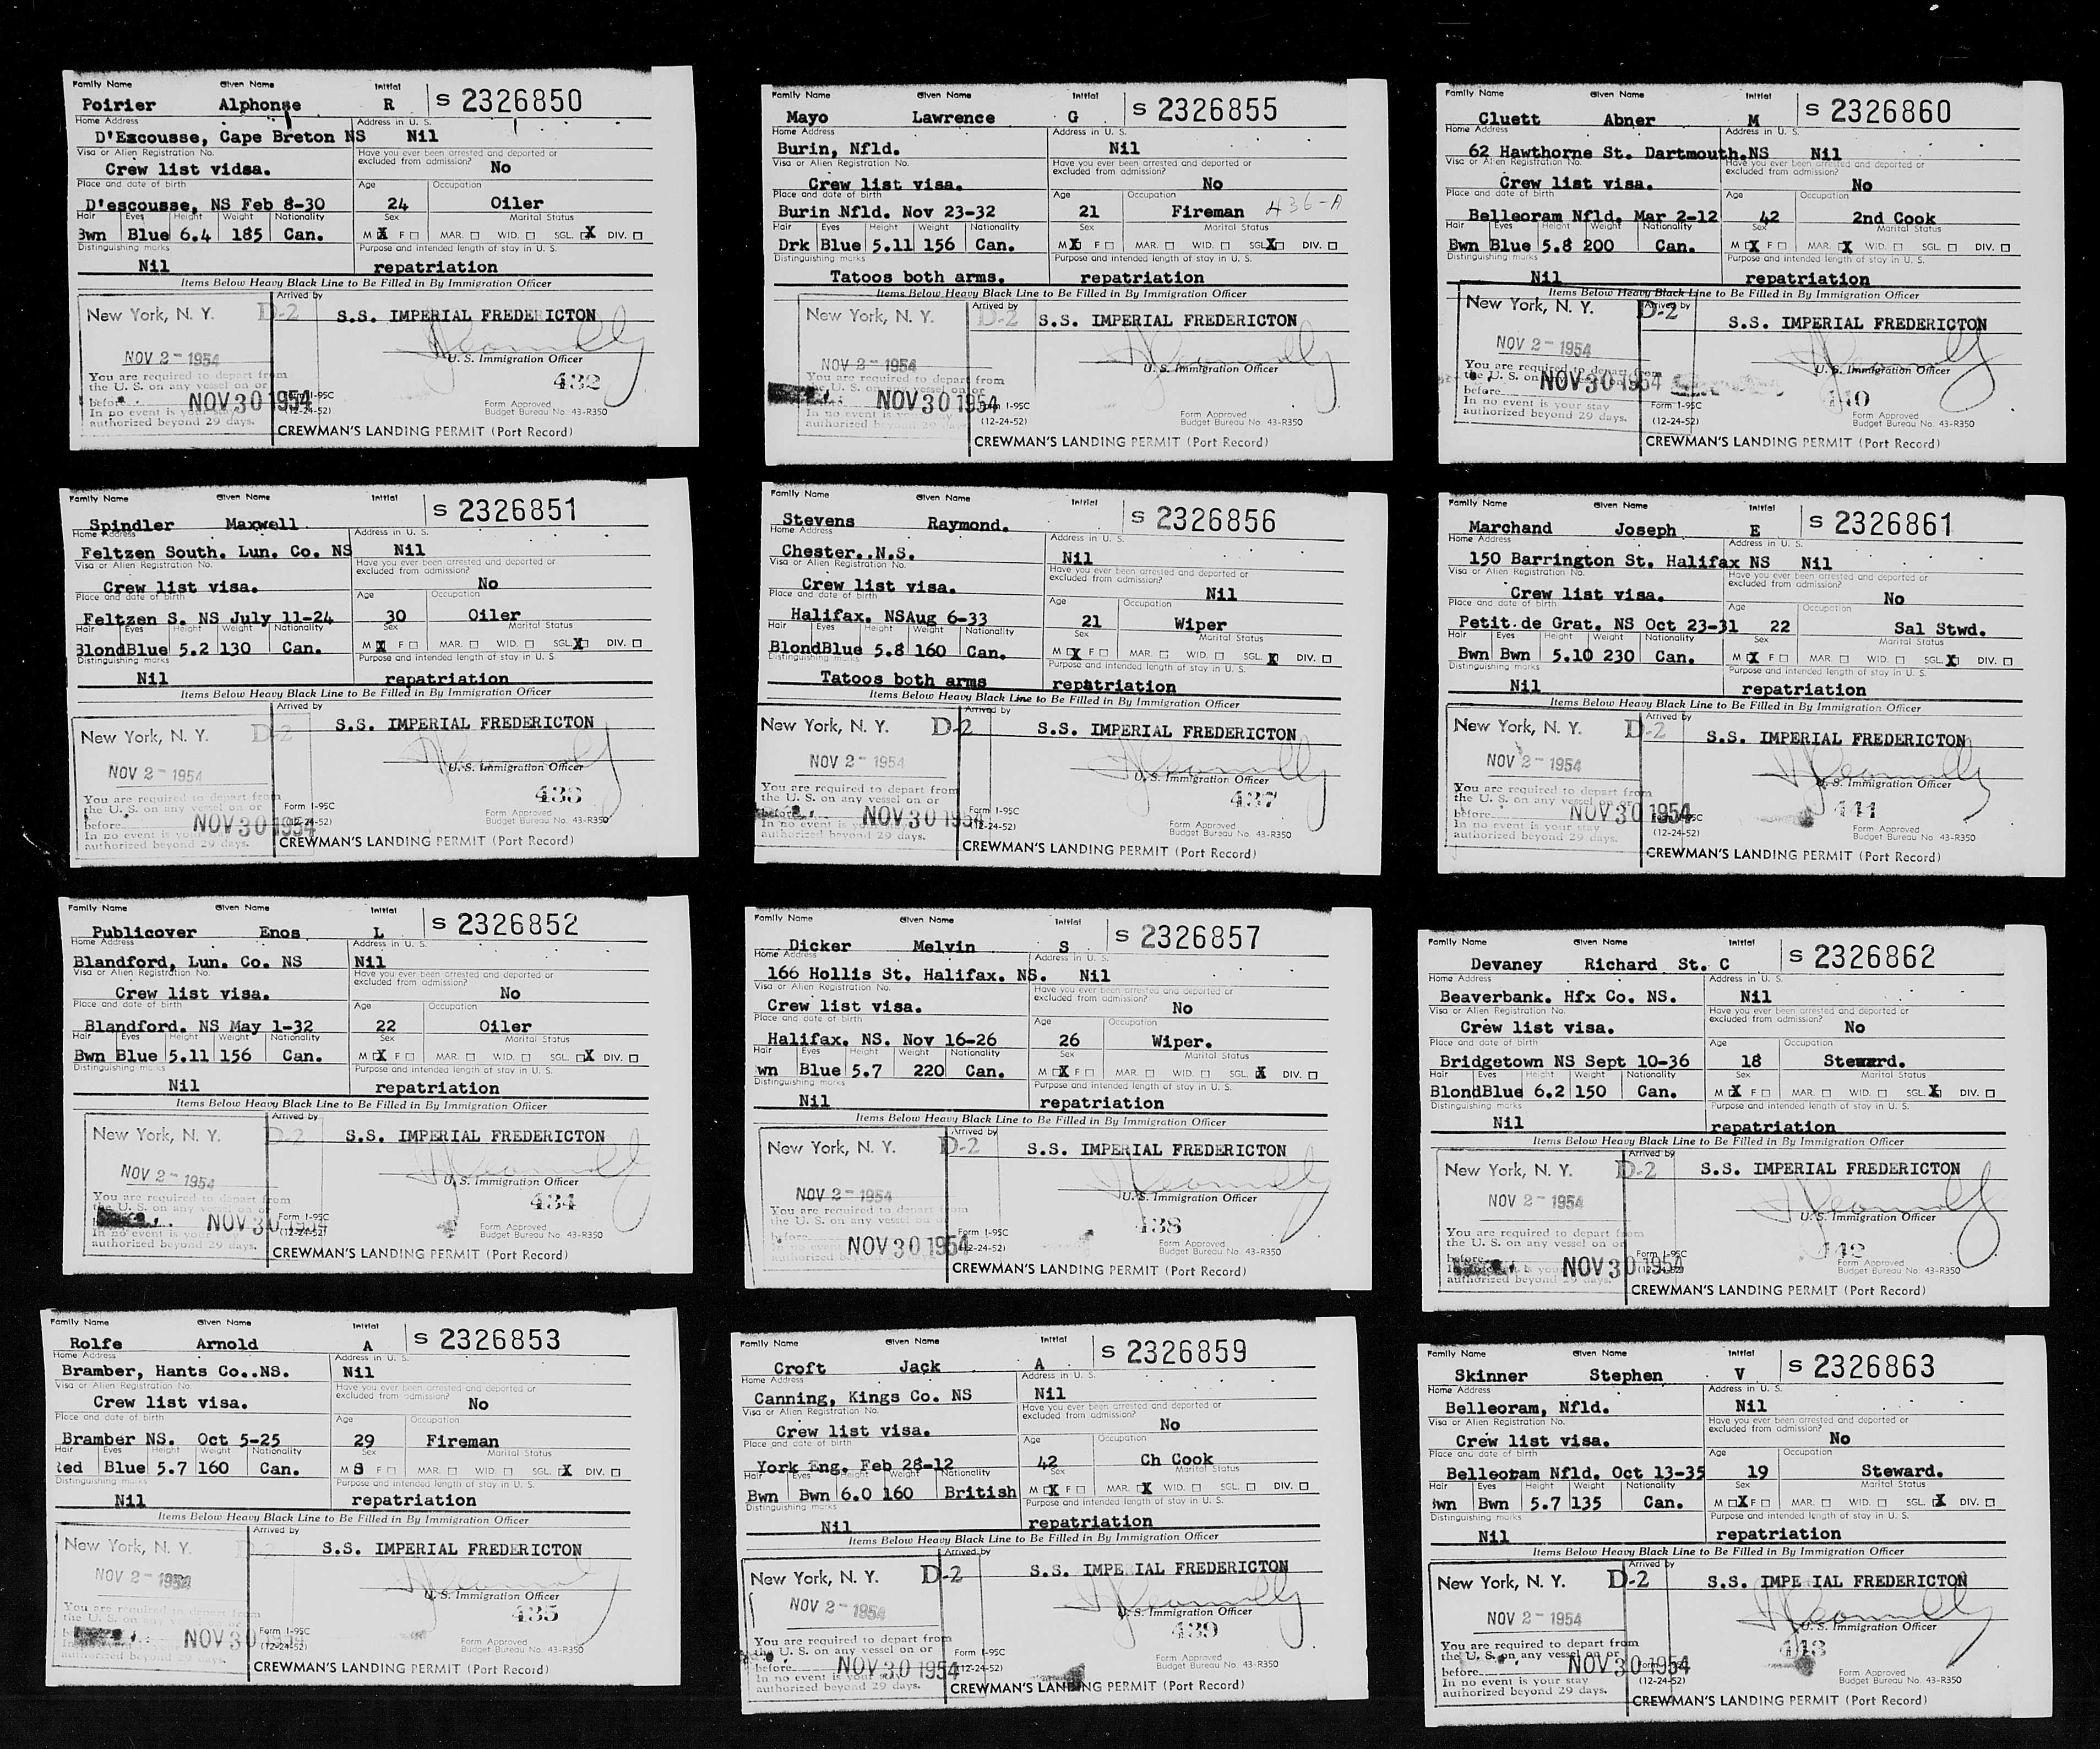 Family Name Given Name Initial
Poirier Alphonse R S 2326850
Home Address Address in U. S.
D'Escousse, Cape Breton NS Nil
Visa or Alien Registration No. Have you ever been arrested and deported or excluded from admission?
Crew list vidsa. No
Place and date of birth Age Occupation
D'escousse, NS Feb 8-30 24 Oiler
Hair Eyes Height Weight Nationality Sex Marital Status
Bwn Blue 6.4 185 Can. M X F MAR. WID. SGL. X DIV.
Distinguishing marks Purpose and intended length of stay in U. S.
Nil repatriation
Items Below Heavy Black Line to Be Filled in By Immigration Officer
Arrived by
New York, N. Y. D-2 S.S. IMPERIAL FREDERICTON
NOV 2- 1954 U. S. Immigration Officer
You are required to depart from
the U. S. on any vessel on or
before NOV 30 1954
In no event is your stay
authorized beyond 29 days.
432
Form I-95C
(12-24-52)
Form Approved
Budget Bureau No. 43-R350
CREWMAN'S LANDING PERMIT (Port Record)
Family Name Given Name Initial
Spindler Maxwell S 2326851
Home Address Address in U. S.
Feltzen South. Lun. Co. NS Nil
Visa or Alien Registration No. Have you ever been arrested and deported or excluded from admission?
Crew list visa. No
Place and date of birth Age Occupation
Feltzen S. NS July 11-24 30 Oiler
Hair Eyes Height Weight Nationality Sex Marital Status
Blond Blue 5.2 130 Can. M X F MAR. WID. SGL. X DIV.
Distinguishing marks Purpose and intended length of stay in U. S.
Nil repatriation
Items Below Heavy Black Line to Be Filled in By Immigration Officer
Arrived by
New York, N. Y. D-2 S.S. IMPERIAL FREDERICTON
NOV 2- 1954 U. S. Immigration Officer
You are required to depart from
the U. S. on any vessel on or
before NOV 30 1954
In no event is your stay
authorized beyond 29 days.
433
Form I-95C
(12-24-52)
Form Approved
Budget Bureau No. 43-R350
CREWMAN'S LANDING PERMIT (Port Record)
Family Name Given Name Initial
Publicover Enos L S 2326852
Home Address Address in U. S.
Blandford, Lun. Co. NS Nil
Visa or Alien Registration No. Have you ever been arrested and deported or excluded from admission?
Crew list visa. No
Place and date of birth Age Occupation
Blandford. NS May 1-32 22 Oiler
Hair Eyes Height Weight Nationality Sex Marital Status
Bwn Blue 5.11 156 Can. M X F MAR. WID. SGL. X DIV.
Distinguishing marks Purpose and intended length of stay in U. S.
Nil repatriation
Items Below Heavy Black Line to Be Filled in By Immigration Officer
Arrived by
New York, N. Y. D-2 S.S. IMPERIAL FREDERICTON
NOV 2- 1954 U. S. Immigration Officer
You are required to depart from
the U. S. on any vessel on or
NOV 30 1954
In no event is your stay
authorized beyond 29 days.
434
Form I-95C
(12-24-52)
Form Approved
Budget Bureau No. 43-R350
CREWMAN'S LANDING PERMIT (Port Record)
Family Name Given Name Initial
Rolfe Arnold A S 2326853
Home Address Address in U. S.
Bramber, Hants Co..NS. Nil
Visa or Alien Registration No. Have you ever been arrested and deported or excluded from admission?
Crew list visa. No
Place and date of birth Age Occupation
Bramber NS. Oct 5-25 29 Fireman
Hair Eyes Height Weight Nationality Sex Marital Status
Red Blue 5.7 160 Can. M S F MAR. WID. SGL. X DIV.
Distinguishing marks Purpose and intended length of stay in U. S.
Nil repatriation
Items Below Heavy Black Line to Be Filled in By Immigration Officer
Arrived by
New York, N. Y. D-2 S.S. IMPERIAL FREDERICTON
NOV 2- 1954 U. S. Immigration Officer
You are required to depart from
the U. S. on any vessel on or
NOV 30 1954
authorized beyond 29 days.
435
Form I-95C
(12-24-52)
Form Approved
Budget Bureau No. 43-R350
CREWMAN'S LANDING PERMIT (Port Record)
Family Name Given Name Initial
Mayo Lawrence G S 2326855
Home Address Address in U. S.
Burin, Nfld. Nil
Visa or Alien Registration No. Have you ever been arrested and deported or excluded from admission?
Crew list visa. No
Place and date of birth Age Occupation
Burin Nfld. Nov 23-32 21 Fireman 436-A
Hair Eyes Height Weight Nationality Sex Marital Status
Drk Blue 5.11 156 Can. M X F MAR. WID. SGL. X DIV.
Distinguishing marks Purpose and intended length of stay in U. S.
Tatoos both arms. repatriation
Items Below Heavy Black Line to Be Filled in By Immigration Officer
Arrived by
New York, N. Y. D-2 S.S. IMPERIAL FREDERICTON
NOV 2- 1954 U. S. Immigration Officer
You are required to depart from
the U. S. on any vessel on or
NOV 30 1954
In no event is your stay
authorized beyond 29 days.
Form I-95C
(12-24-52)
Form Approved
Budget Bureau No. 43-R350
CREWMAN'S LANDING PERMIT (Port Record)
Family Name Given Name Initial
Stevens Raymond. S 2326856
Home Address Address in U. S.
Chester..N.S. Nil
Visa or Alien Registration No. Have you ever been arrested and deported or excluded from admission?
Crew list visa. Nil
Place and date of birth Age Occupation
Halifax. NSAug 6-33 21 Wiper
Hair Eyes Height Weight Nationality Sex Marital Status
Blond Blue 5.8 160 Can. M X F MAR. WID. SGL. X DIV.
Distinguishing marks Purpose and intended length of stay in U. S.
Tatoos both arms repatriation
Items Below Heavy Black Line to Be Filled in By Immigration Officer
Arrived by
New York, N. Y. D-2 S.S. IMPERIAL FREDERICTON
NOV 2- 1954 U. S. Immigration Officer
You are required to depart from
the U. S. on any vessel on or
before NOV 30 1954
In no event is your stay
authorized beyond 29 days.
437
Form I-95C
(12-24-52)
Form Approved
Budget Bureau No. 43-R350
CREWMAN'S LANDING PERMIT (Port Record)
Family Name Given Name Initial
Dicker Melvin S S 2326857
Home Address Address in U. S.
166 Hollis St. Halifax. NS. Nil
Visa or Alien Registration No. Have you ever been arrested and deported or excluded from admission?
Crew list visa. No
Place and date of birth Age Occupation
Halifax. NS. Nov 16-26 26 Wiper.
Hair Eyes Height Weight Nationality Sex Marital Status
wn Blue 5.7 220 Can. M X F MAR. WID. SGL. X DIV.
Distinguishing marks Purpose and intended length of stay in U. S.
Nil repatriation
Items Below Heavy Black Line to Be Filled in By Immigration Officer
Arrived by
New York, N. Y. D-2 S.S. IMPERIAL FREDERICTON
NOV 2- 1954 U. S. Immigration Officer
You are required to depart from
the U. S. on any vessel on or
before NOV 30 1954
In no event
authorized
438
(12-24-52)
Form Approved
Budget Bureau No. 43-R350
CREWMAN'S LANDING PERMIT (Port Record)
Family Name Given Name Initial
Croft Jack A S 2326859
Home Address Address in U. S.
Canning, Kings Co. NS Nil
Visa or Alien Registration No. Have you ever been arrested and deported or excluded from admission?
Crew list visa. No
Place and date of birth Age Occupation
York Eng. Feb 28-12 42 Ch Cook
Hair Eyes Height Weight Nationality Sex Marital Status
Bwn Bwn 6.0 160 British M X F MAR. X WID. SGL. DIV.
Distinguishing marks Purpose and intended length of stay in U. S.
Nil repatriation
Items Below Heavy Black Line to Be Filled in By Immigration Officer
Arrived by
New York, N. Y. D-2 S.S. IMPE IAL FREDERICTON
NOV 2- 1954 U. S. Immigration Officer
You are required to depart from
the U. S. on any vessel on or
before NOV 30 1954
In no event is your stay
authorized beyond 29 days.
439
Form I-95C
(12-24-52)
Form Approved
Budget Bureau No. 43-R350
CREWMAN'S LANDING PERMIT (Port Record)
Family Name Given Name Initial
Cluett Abner M S 2326860
Home Address Address in U. S.
62 Hawthorne St. Dartmouth.NS Nil
Visa or Alien Registration No. Have you ever been arrested and deported or excluded from admission?
Crew list visa. No
Place and date of birth Age Occupation
Belleoram Nfld. Mar 2-12 42 2nd Cook
Hair Eyes Height Weight Nationality Sex Marital Status
Bwn Blue 5.8 200 Can. M X F MAR. X WID. SGL. DIV.
Distinguishing marks Purpose and intended length of stay in U. S.
Nil repatriation
Items Below Heavy Black Line to Be Filled in By Immigration Officer
Arrived by
New York, N. Y. D-2 S.S. IMPERIAL FREDERICTON
NOV 2- 1954 U. S. Immigration Officer
You are required to depart from
the U. S. on NOV 30 1954
before
In no event is your stay
authorized beyond 29 days.
440
Form I-95C
(12-24-52)
Form Approved
Budget Bureau No. 43-R350
CREWMAN'S LANDING PERMIT (Port Record)
Family Name Given Name Initial
Marchand Joseph E S 2326861
Home Address Address in U. S.
150 Barrington St. Halifax NS Nil
Visa or Alien Registration No. Have you ever been arrested and deported or excluded from admission?
Crew list visa. No
Place and date of birth Age Occupation
Petit.de Grat. NS Oct 23-31 22 Sal Stwd.
Hair Eyes Height Weight Nationality Sex Marital Status
Bwn Bwn 5.10 230 Can. M X F MAR. WID. SGL. X DIV.
Distinguishing marks Purpose and intended length of stay in U. S.
Nil repatriation
Items Below Heavy Black Line to Be Filled in By Immigration Officer
Arrived by
New York, N. Y. D-2 S.S. IMPERIAL FREDERICTON
NOV 2- 1954 U. S. Immigration Officer
You are required to depart from
the U. S. on any vessel on or
before NOV 30 1954
In no event is your stay
authorized beyond 29 days.
441
(12-24-52)
Form Approved
Budget Bureau No. 43-R350
CREWMAN'S LANDING PERMIT (Port Record)
Family Name Given Name Initial
Devaney Richard St. C S 2326862
Home Address Address in U. S.
Beaverbank. Hfx Co. NS. Nil
Visa or Alien Registration No. Have you ever been arrested and deported or excluded from admission?
Crew list visa. No
Place and date of birth Age Occupation
Bridgetown NS Sept 10-36 18 Steward.
Hair Eyes Height Weight Nationality Sex Marital Status
Blond Blue 6.2 150 Can. M X F MAR. WID. SGL. X DIV.
Distinguishing marks Purpose and intended length of stay in U. S.
Nil repatriation
Items Below Heavy Black Line to Be Filled in By Immigration Officer
Arrived by
New York, N. Y. D-2 S.S. IMPERIAL FREDERICTON
NOV 2- 1954 U. S. Immigration Officer
You are required to depart from
the U. S. on any vessel on or
before NOV 30 1954
authorized beyond 29 days.
442
Form I-95C
(12-24-52)
Form Approved
Budget Bureau No. 43-R350
CREWMAN'S LANDING PERMIT (Port Record)
Family Name Given Name Initial
Skinner Stephen V S 2326863
Home Address Address in U. S.
Belleoram, Nfld. Nil
Visa or Alien Registration No. Have you ever been arrested and deported or excluded from admission?
Crew list visa. No
Place and date of birth Age Occupation
Belleoram Nfld. Oct 13-35 19 Steward.
Hair Eyes Height Weight Nationality Sex Marital Status
Bwn Bwn 5.7 135 Can. M X F MAR. WID. SGL. X DIV.
Distinguishing marks Purpose and intended length of stay in U. S.
Nil repatriation
Items Below Heavy Black Line to Be Filled in By Immigration Officer
Arrived by
New York, N. Y. D-2 S.S. IMPE IAL FREDERICTON
NOV 2- 1954 U. S. Immigration Officer
You are required to depart from
the U. S. on any vessel on or
before NOV 30 1954
In no event is your stay
authorized beyond 29 days.
443
(12-24-52)
Form Approved
Budget Bureau No. 43-R350
CREWMAN'S LANDING PERMIT (Port Record)